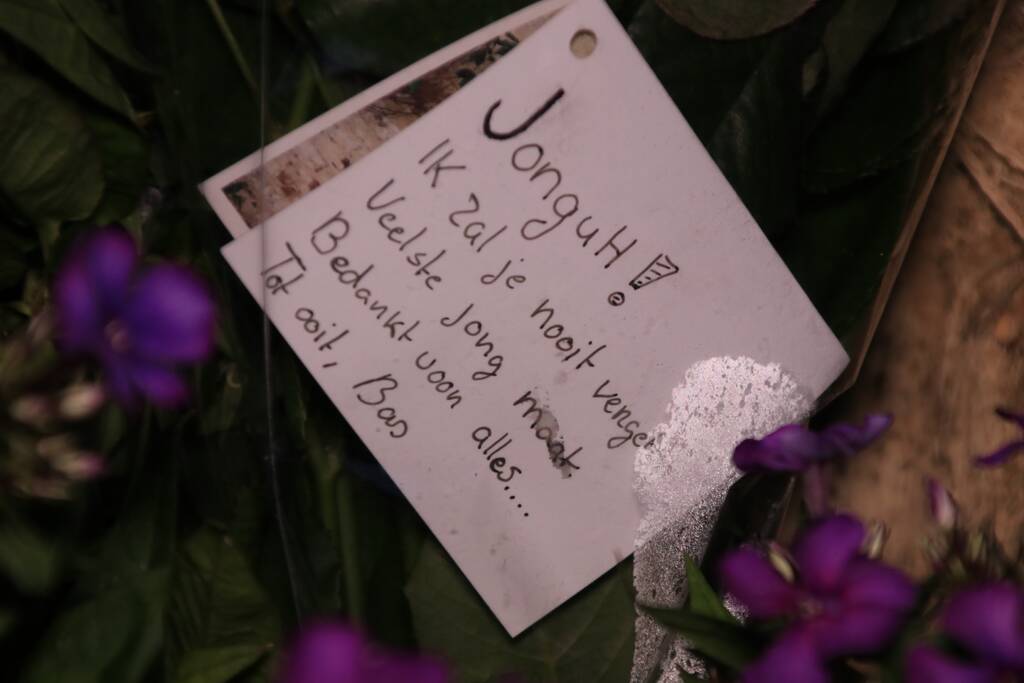 JonguH!
IK zal je nooit venge
Veelste jong maat
Bedankt voon alles....
Tot ooit, Bas